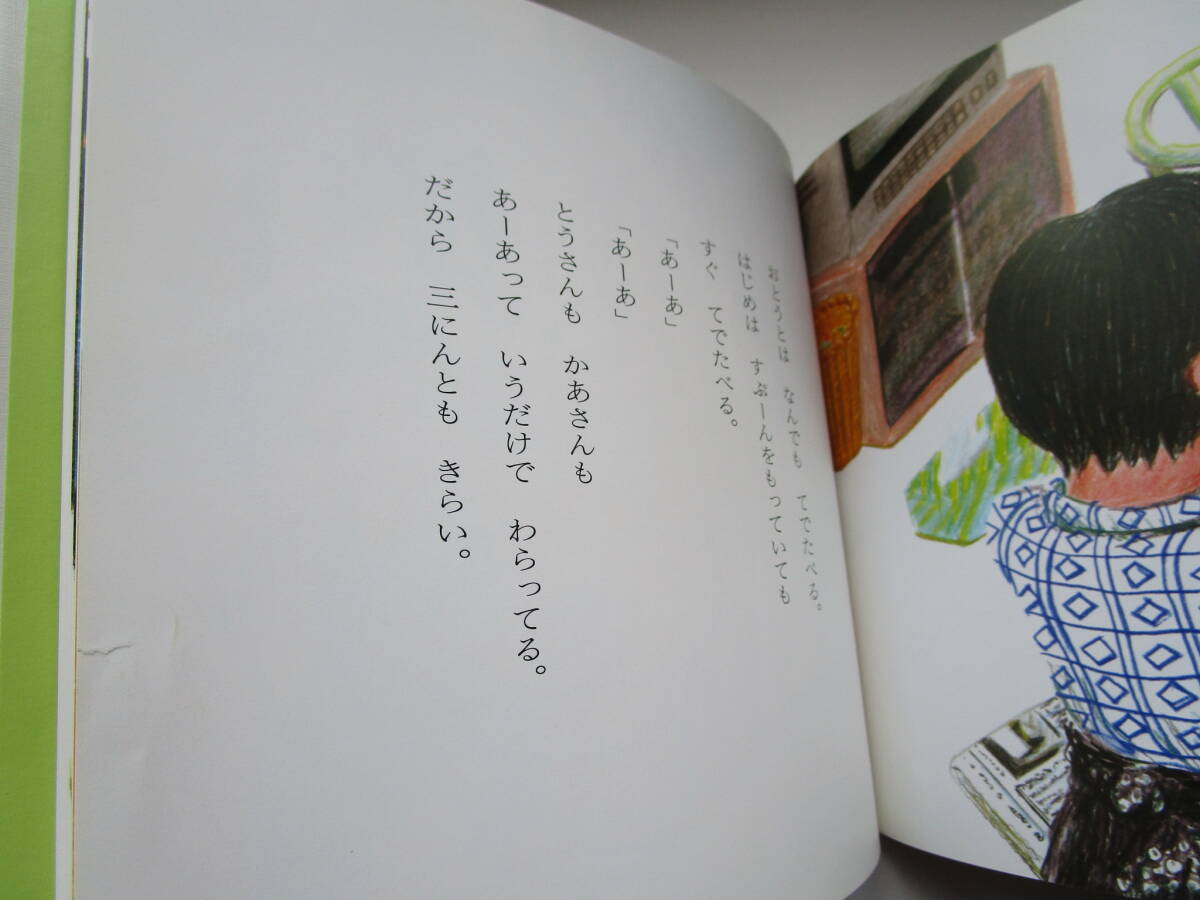 おとうとは　なんでも　てでたべる。
はじめは　すぷーんをもっていても
すぐ　てでたべる。
「あーあ」
「あーあ」
とうさんも　かあさんも
あーあって　いうだけで　わらってる。
だから　三にんとも　きらい。